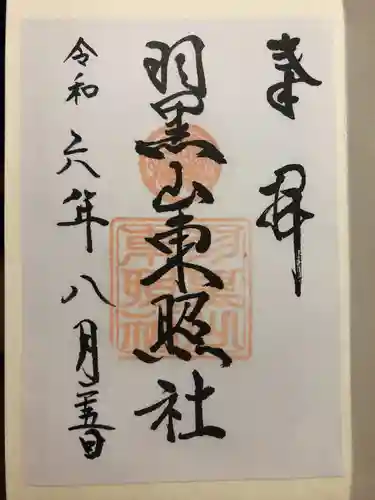 奉拝
羽黒山東照社
令和六年八月二十五日